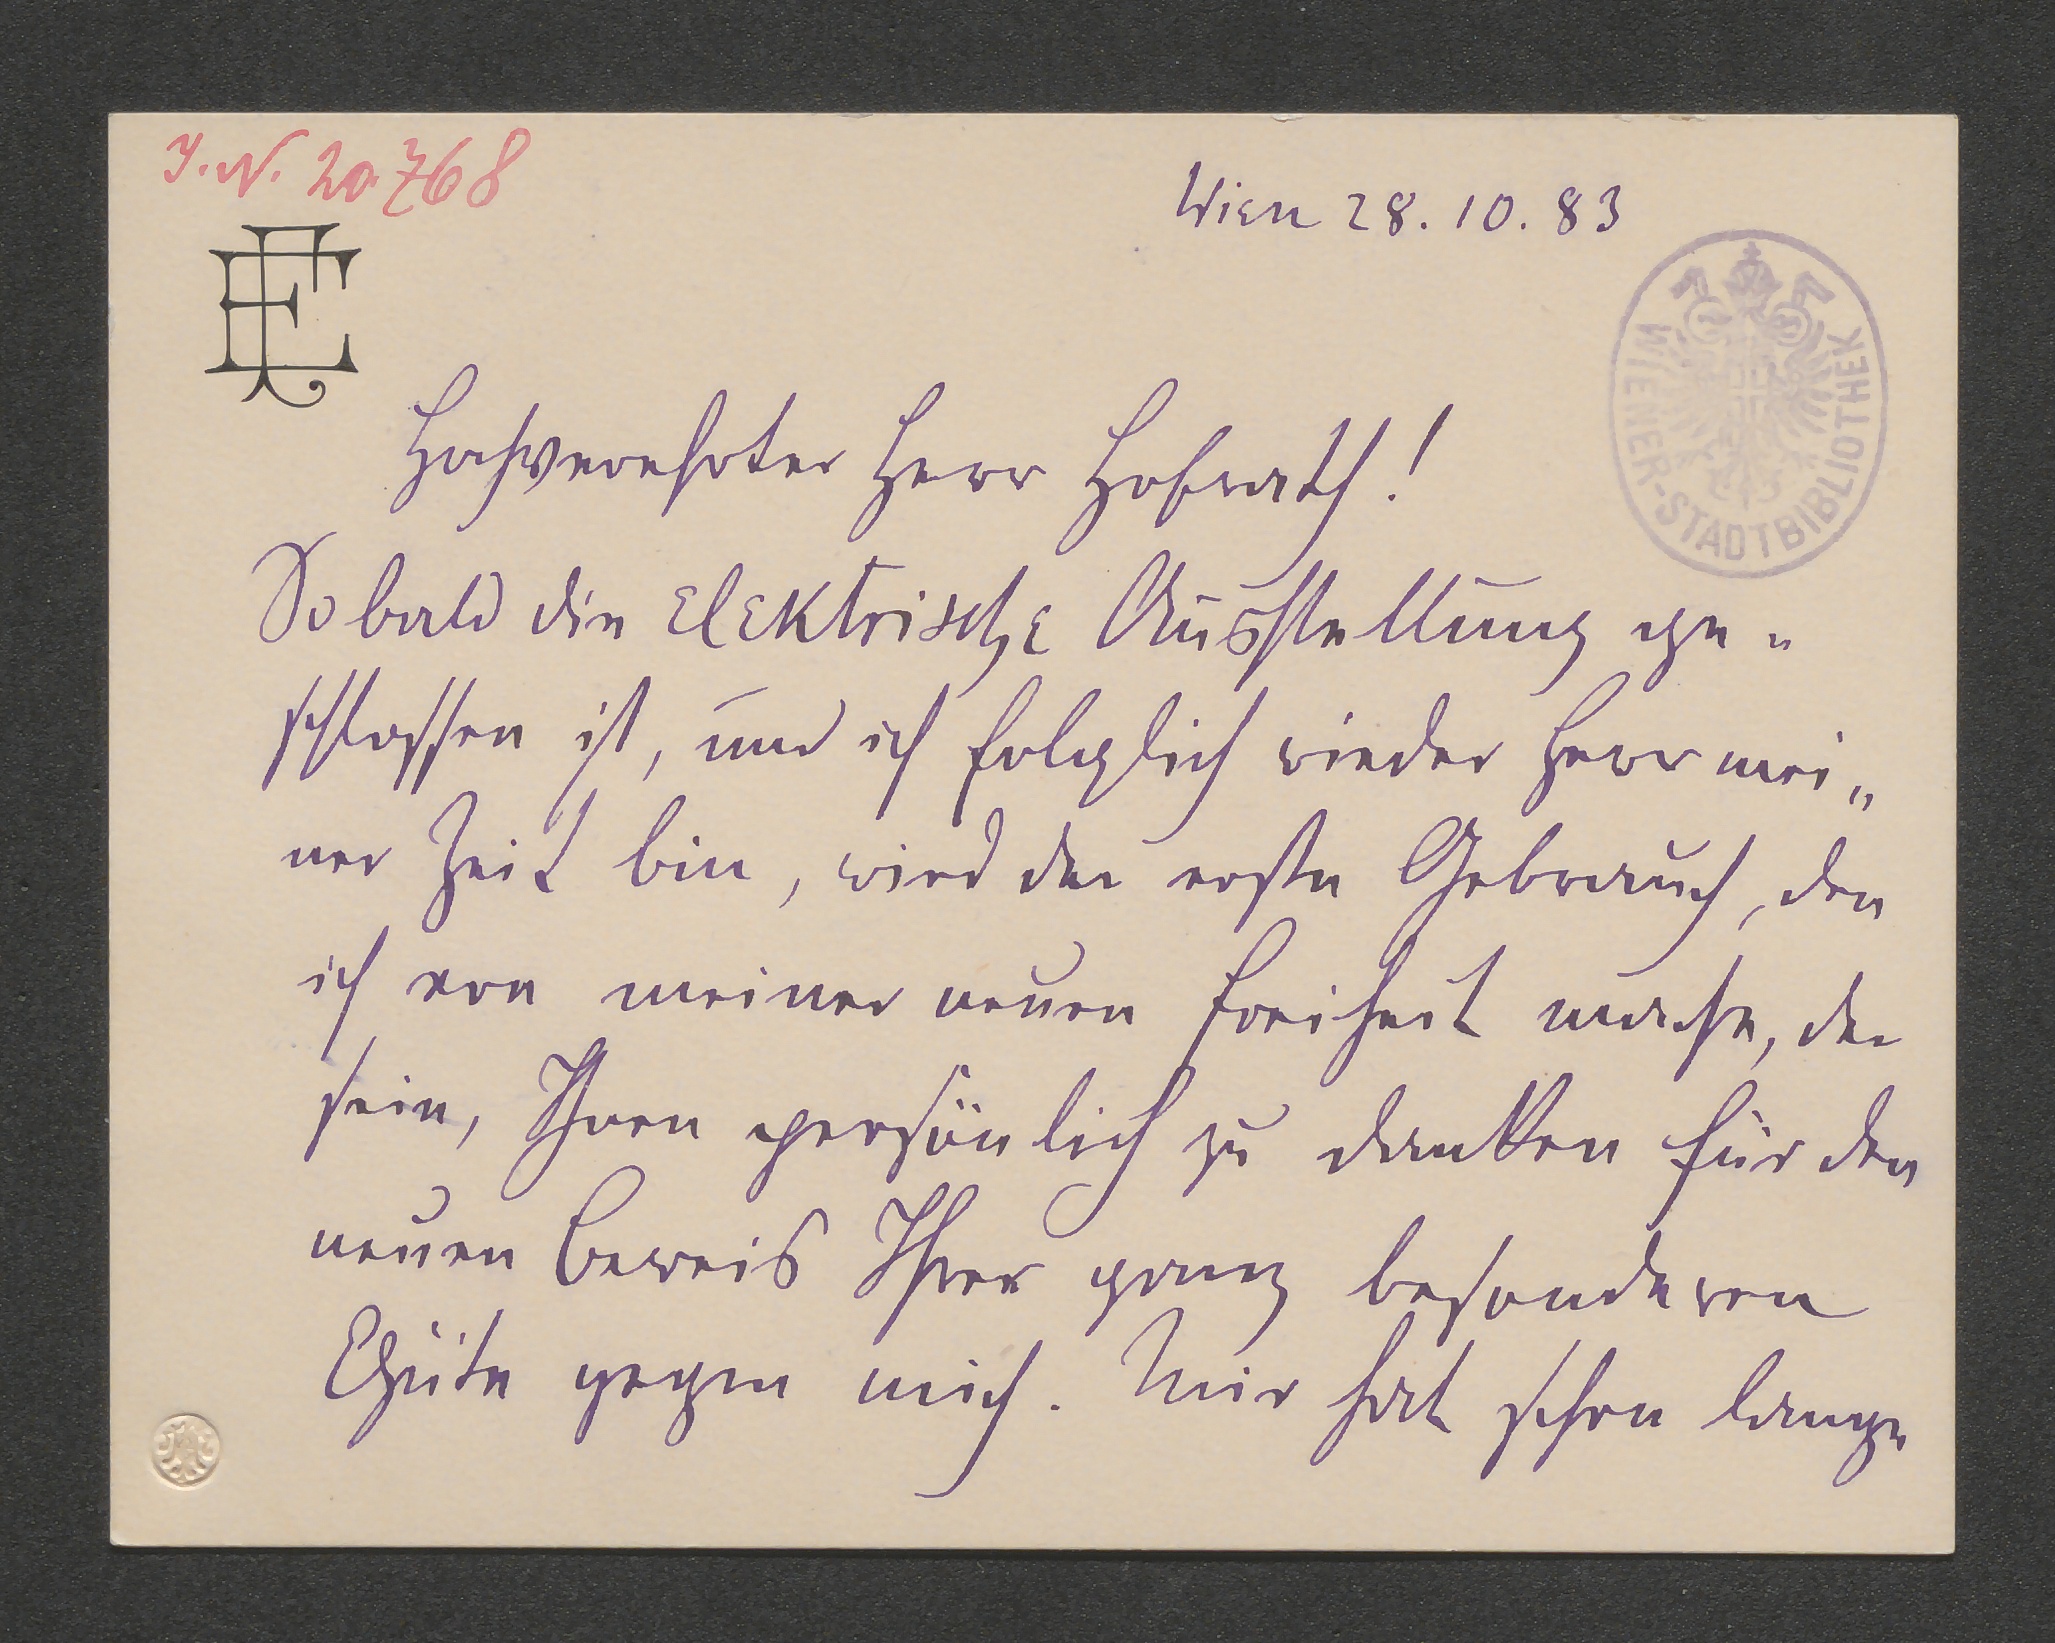 I.N. 20.768
Wien 28.10.83
EF
WIENER-STADTBIBLIOTHEK
Hochverehrter Herr Hofrath!
Sobald die Elektrische Ausstellung ge-
schlossen ist, und ich folglich wieder Herr mei-
ner Zeit bin, wird der erste Gebrauch, den
ich von meiner neuen Freiheit mache, der
sein, Ihnen persönlich zu danken für den
neuen Beweis Ihrer ganz besonderen
Güte gegen mich. Mir hat schon lange